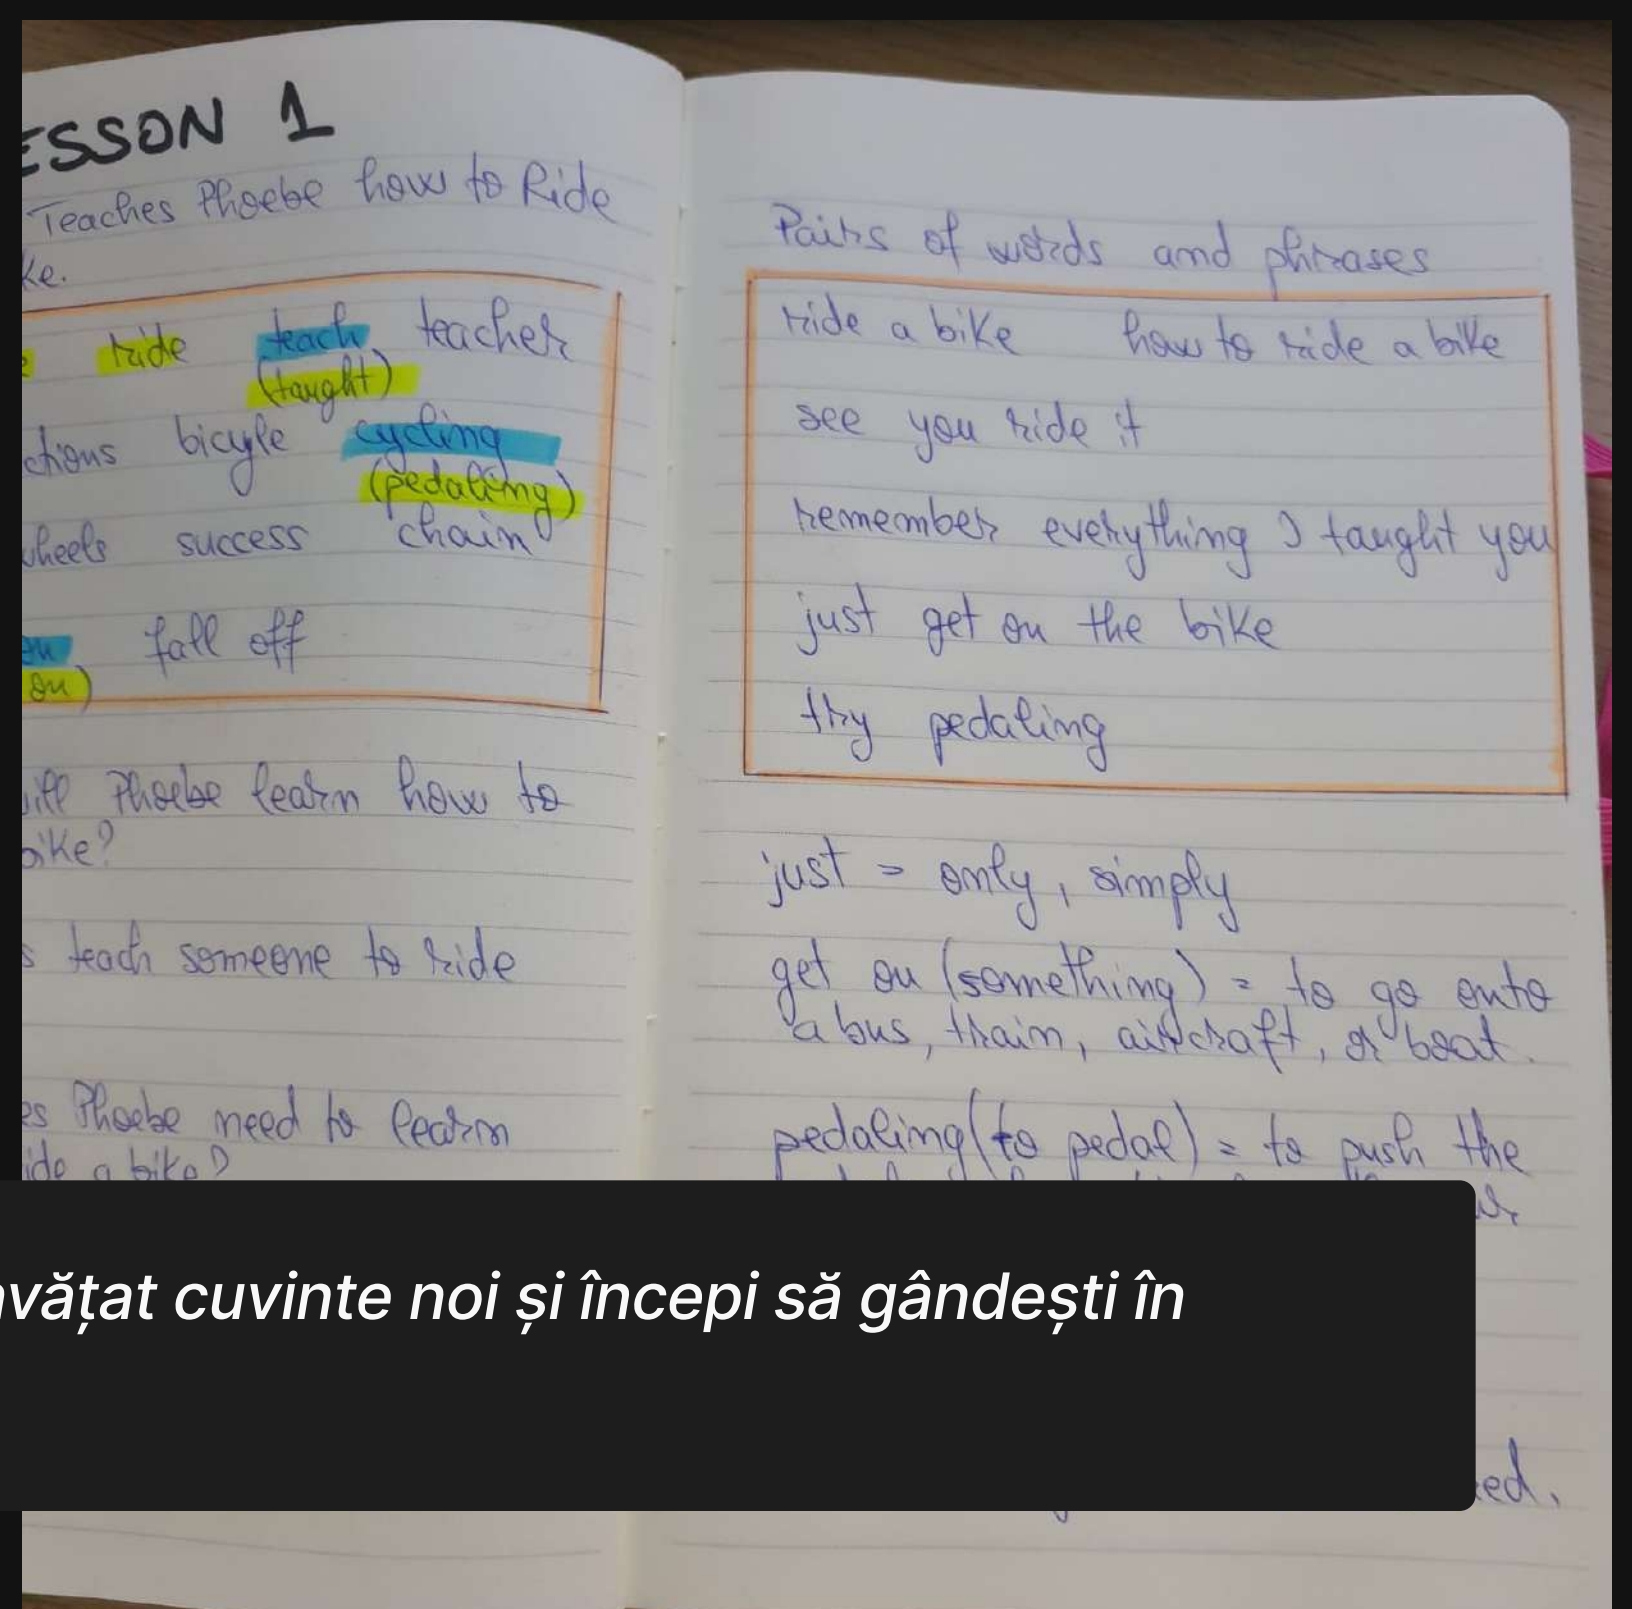 ESSON 1
Teaches Phoebe how to Ride
ke.
ride teach teacher
(taught)
ctions bicyle cycling
(pedaling)
wheels success chain
on fall off
on)
will Phoebe learn how to
bike?
s teach someone to ride
es Phoebe need to learn
ride a bike?
Pairs of words and phrases
ride a bike how to ride a bike
see you ride it
remember everything I taught you
just get on the bike
try pedaling
just = only, simply
get on (something) = to go onto
a bus, train, aircraft, or boat.
pedaling (to pedal) = to push the
nvățat cuvinte noi și începi să gândești în
ed.